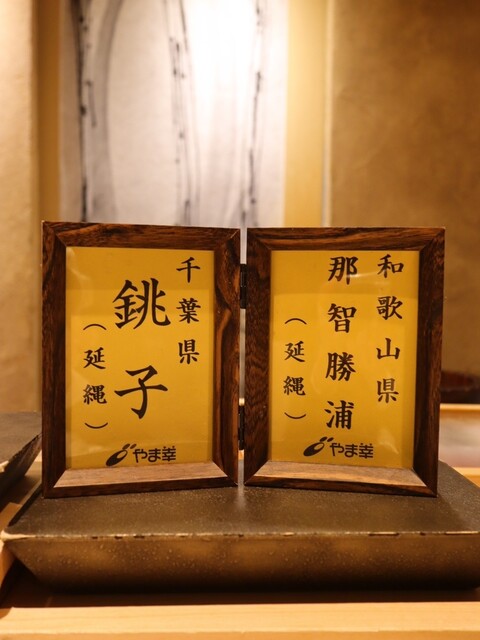 和歌山県
那智勝浦
（延縄）
やま幸
千葉県
銚子
（延縄）
やま幸